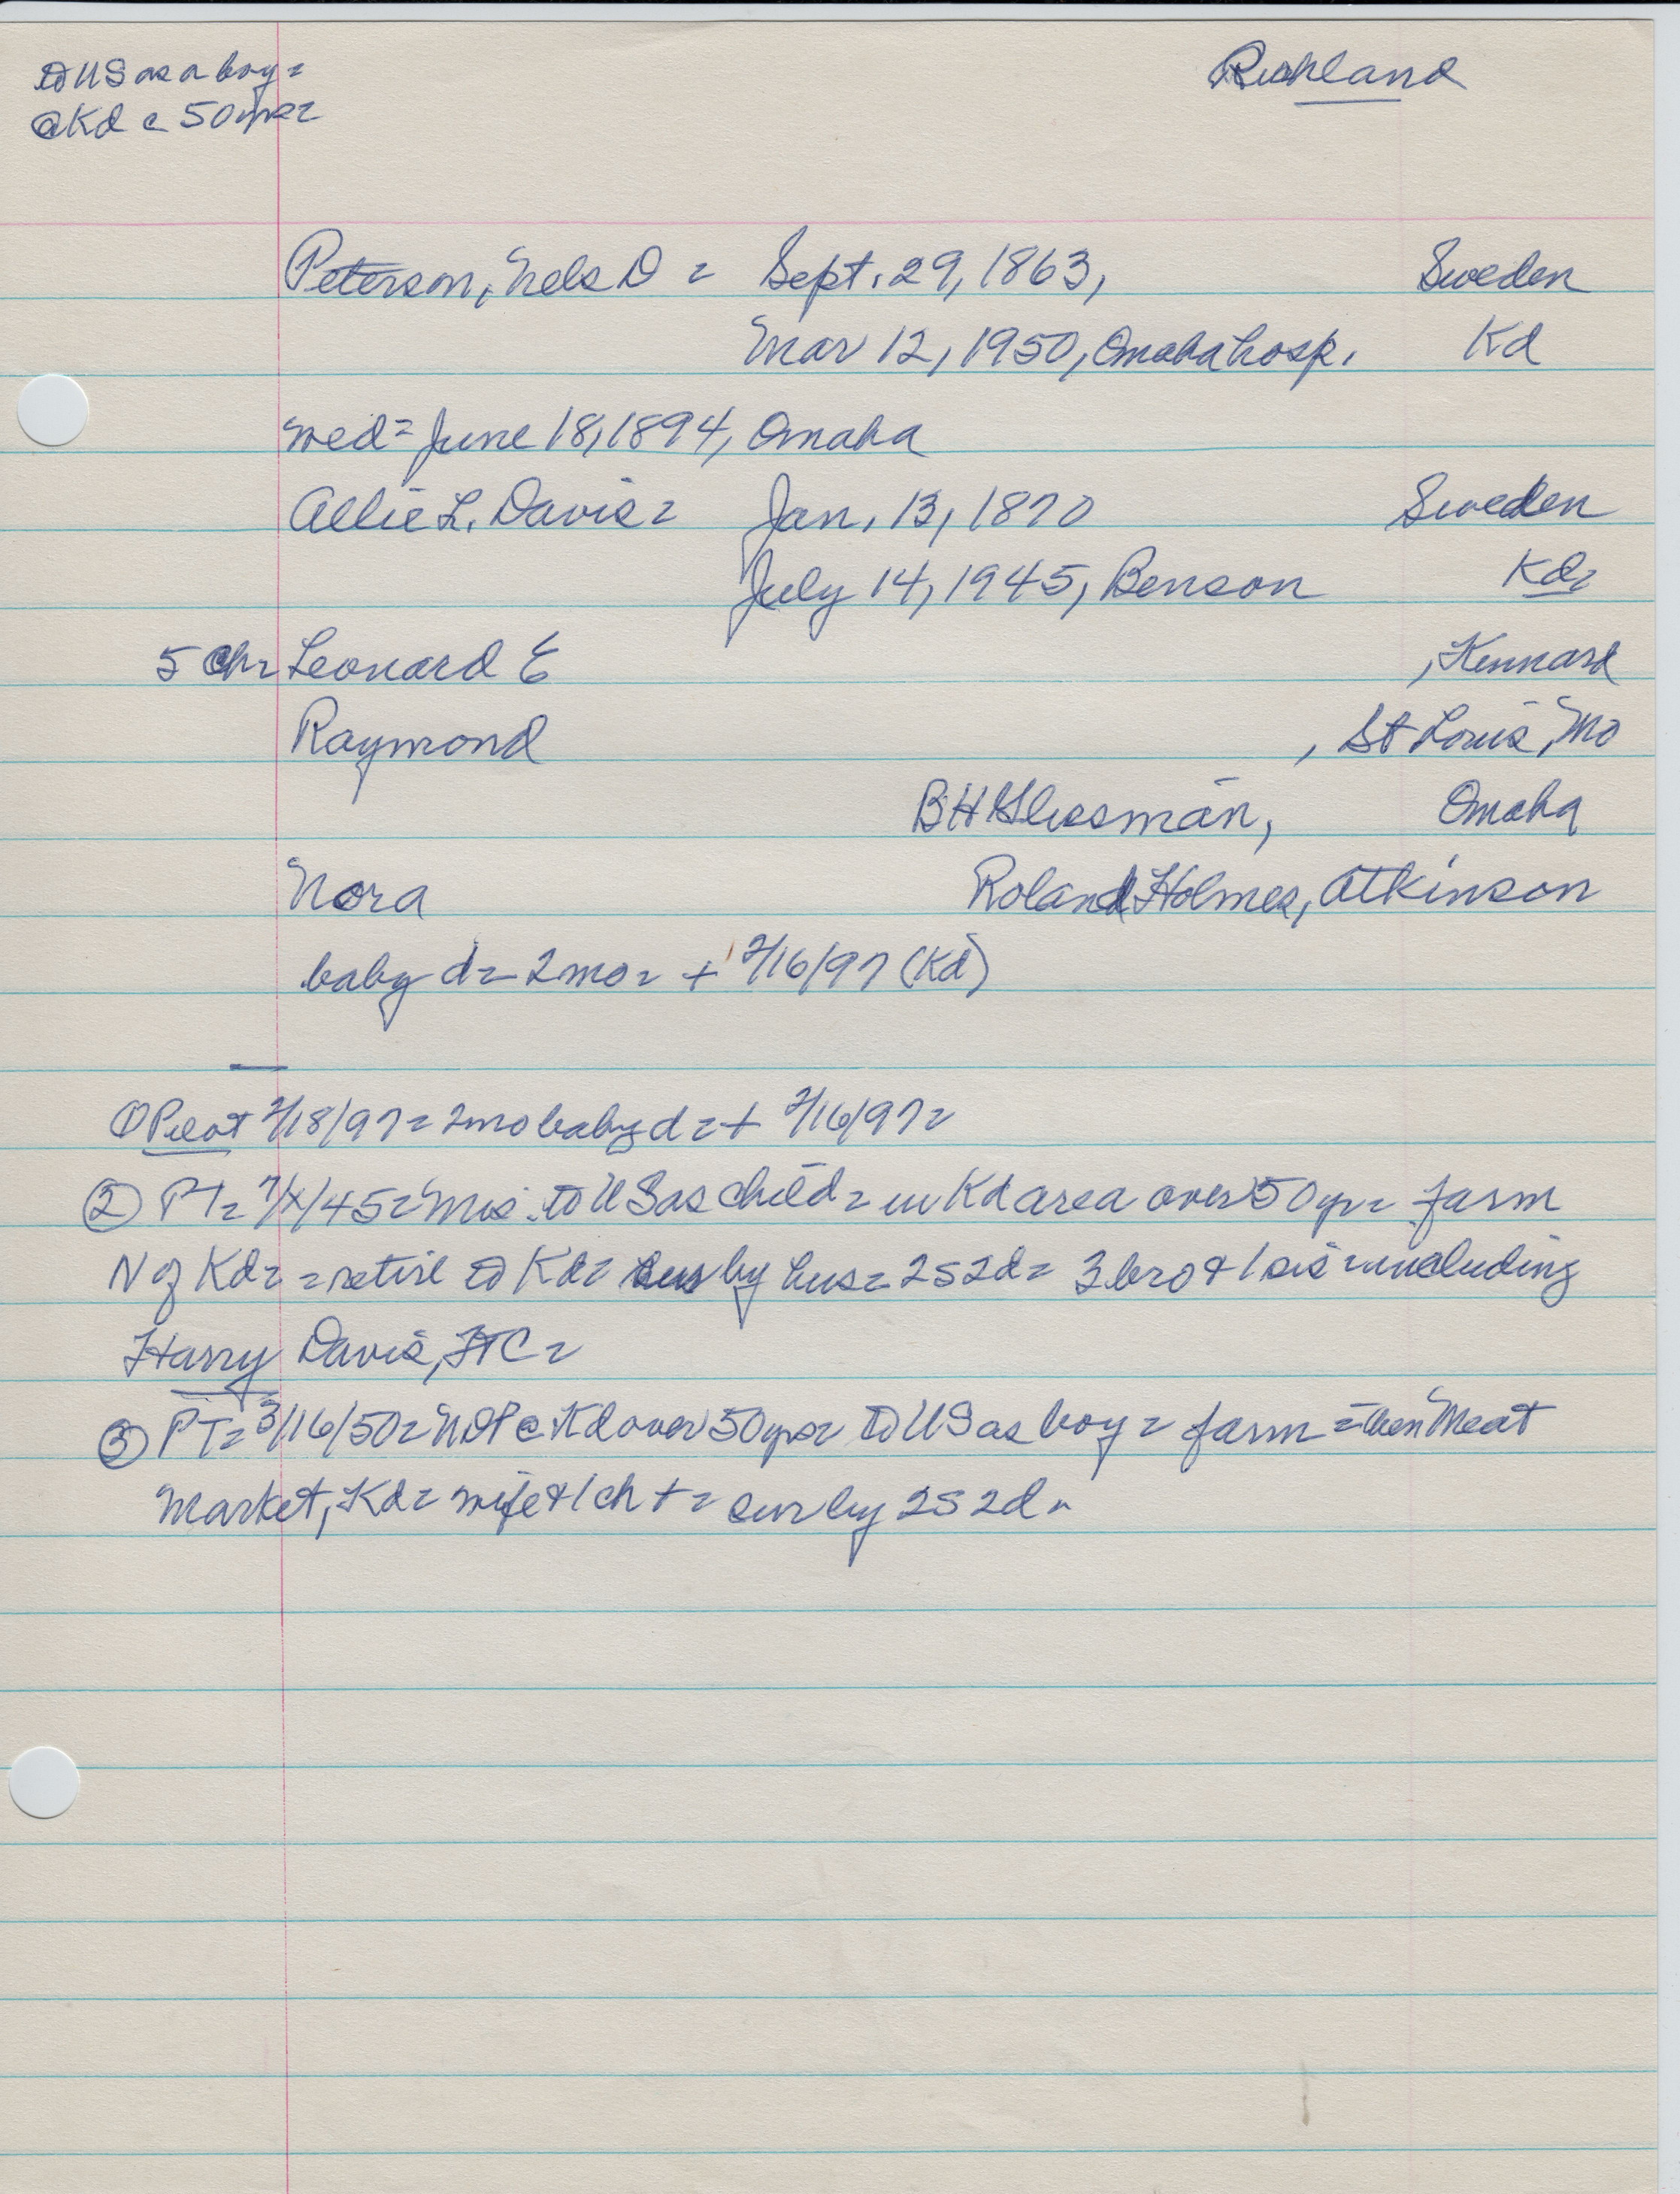 to US as a boy =
@ Kd c 50 yrs =
Richland
Peterson, Nels D = Sept. 29, 1863, Sweden
Mar 12, 1950, Omaha hosp. Kd
wed = June 18, 1894, Omaha
Allie L. Davis = Jan. 13, 1870 Sweden
July 14, 1945, Benson Kd =
5 ch = Leonard E , Kennard
Raymond , St Louis, Mo
B H Glissman, Omaha
Nora Roland Holmes, Atkinson
baby d = 2 mo = + 2/16/97 (Kd)
① Pilot 2/18/97 = 2 mo baby d = + 2/16/97 =
② PT = 7/x/45 = Mrs. to US as child = in Kd area over 50 yr = farm
N of Kd = = retire to Kd = sur by hus = 2s 2d = 3 bro & 1 sis = including
Harry Davis, FTC =
③ PT = 3/16/50 = NDP @ Kd over 50 yrs = to US as boy = farm = then Meat
Market, Kd = wife & 1 ch + = sur by 2s 2d =